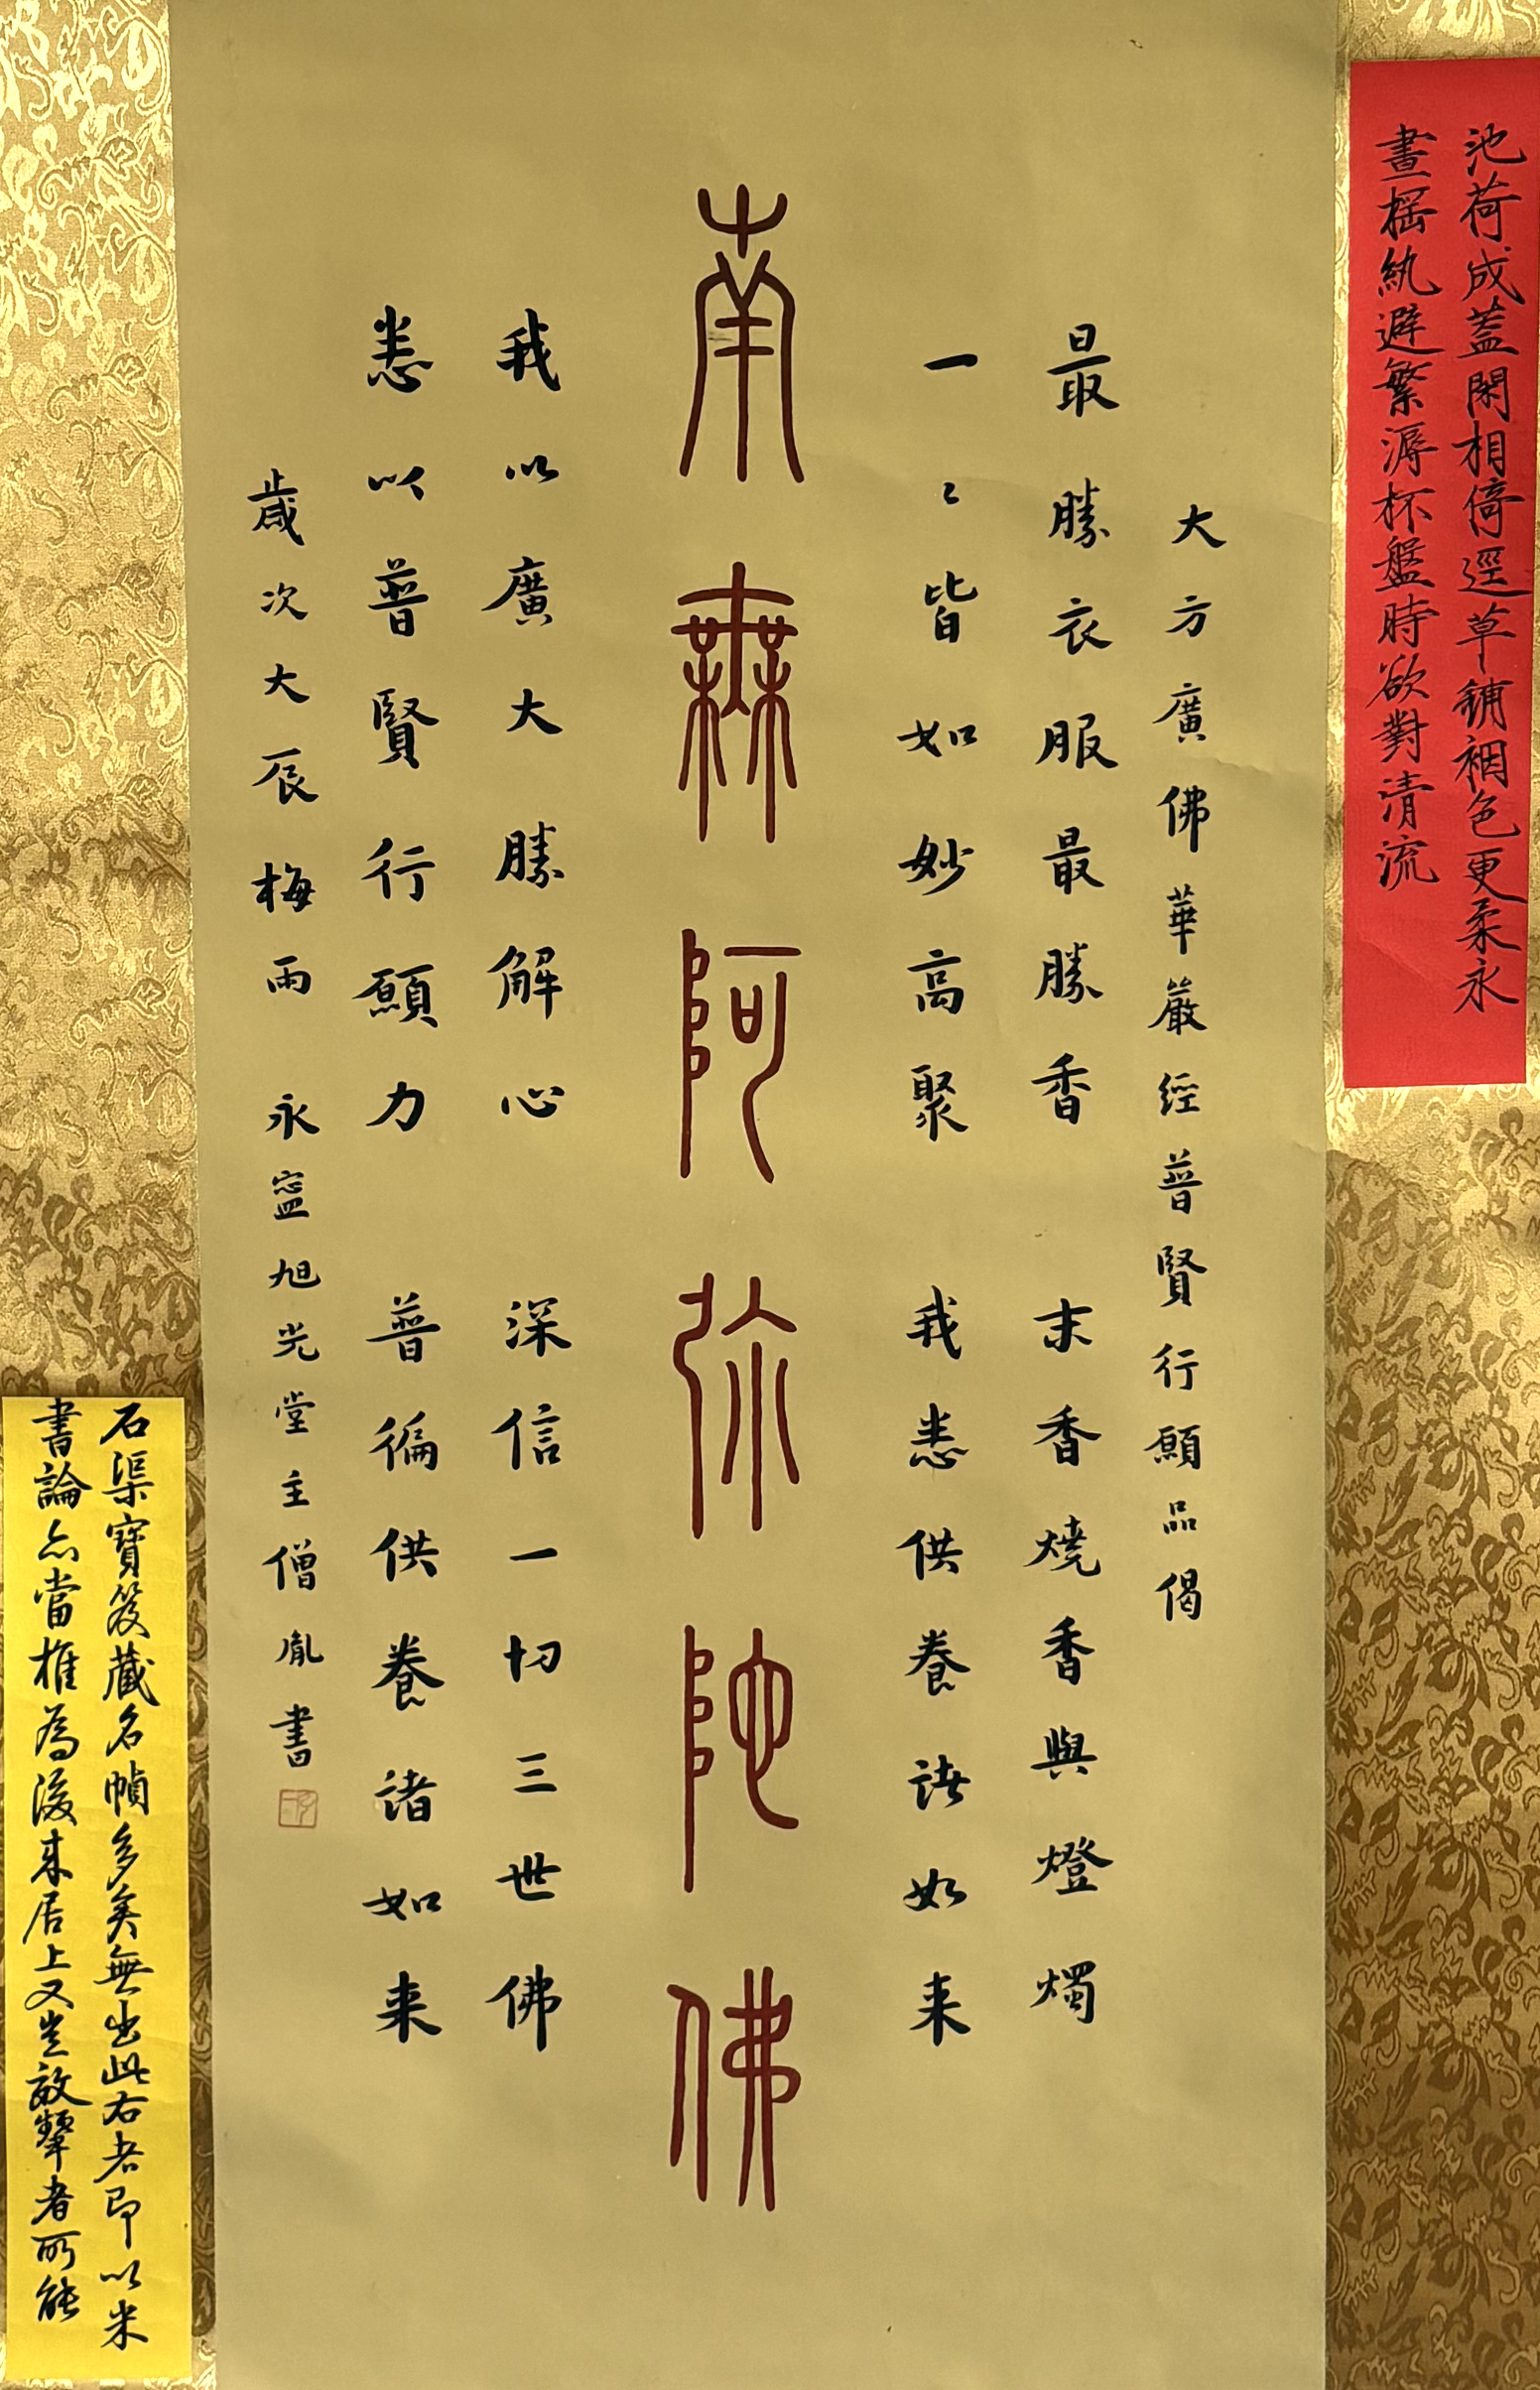 池荷成蓋閑相倚逕草鋪裀色更柔永
晝搖紈避繁溽杯盤時欲對清流
大方廣佛華嚴經普賢行願品偈
最勝衣服最勝香 末香燒香與燈燭
一〻皆如妙高聚 我悉供養諸如来
南無阿弥陀佛
我以廣大勝解心 深信一切三世佛
悉以普賢行願力 普徧供養諸如来
歲次大辰梅雨 永寍旭光堂主僧胤書
石渠寶笈藏名幀多矣無出此右者即以米
書論亦當推為後来居上又豈效顰者所能